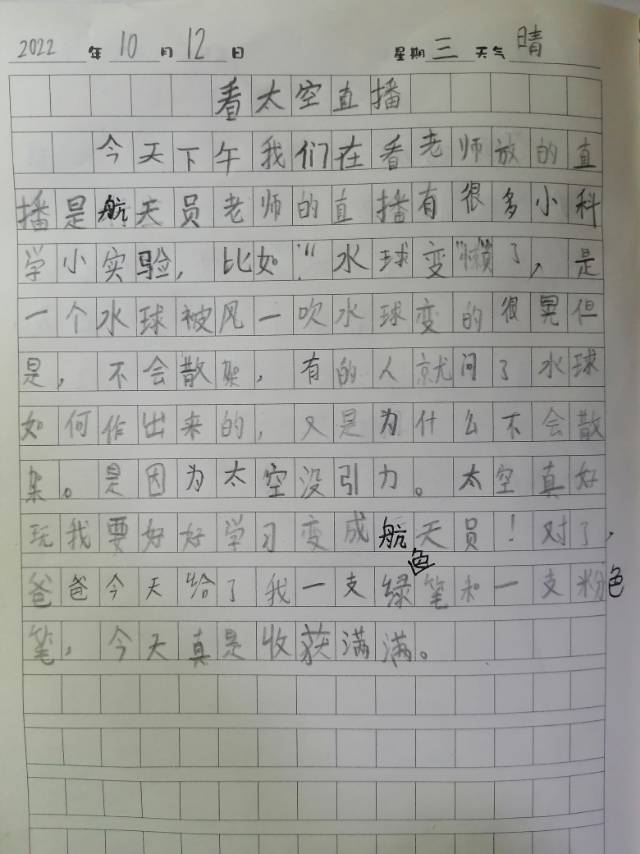 2022 年 10 月 12 日 星期 三 天气 晴
看太空直播
今天下午我们在看老师放的直
播是航天员老师的直播有很多小科
学小实验，比如：“水球变“懒”了，是
一个水球被风一吹水球变的很晃但
是，不会散架，有的人就问了水球
如何作出来的，又是为什么不会散
架。是因为太空没引力。太空真好
玩我要好好学习变成航天员！对了，
爸爸今天给了我一支绿色笔和一支粉色
笔，今天真是收获满满。